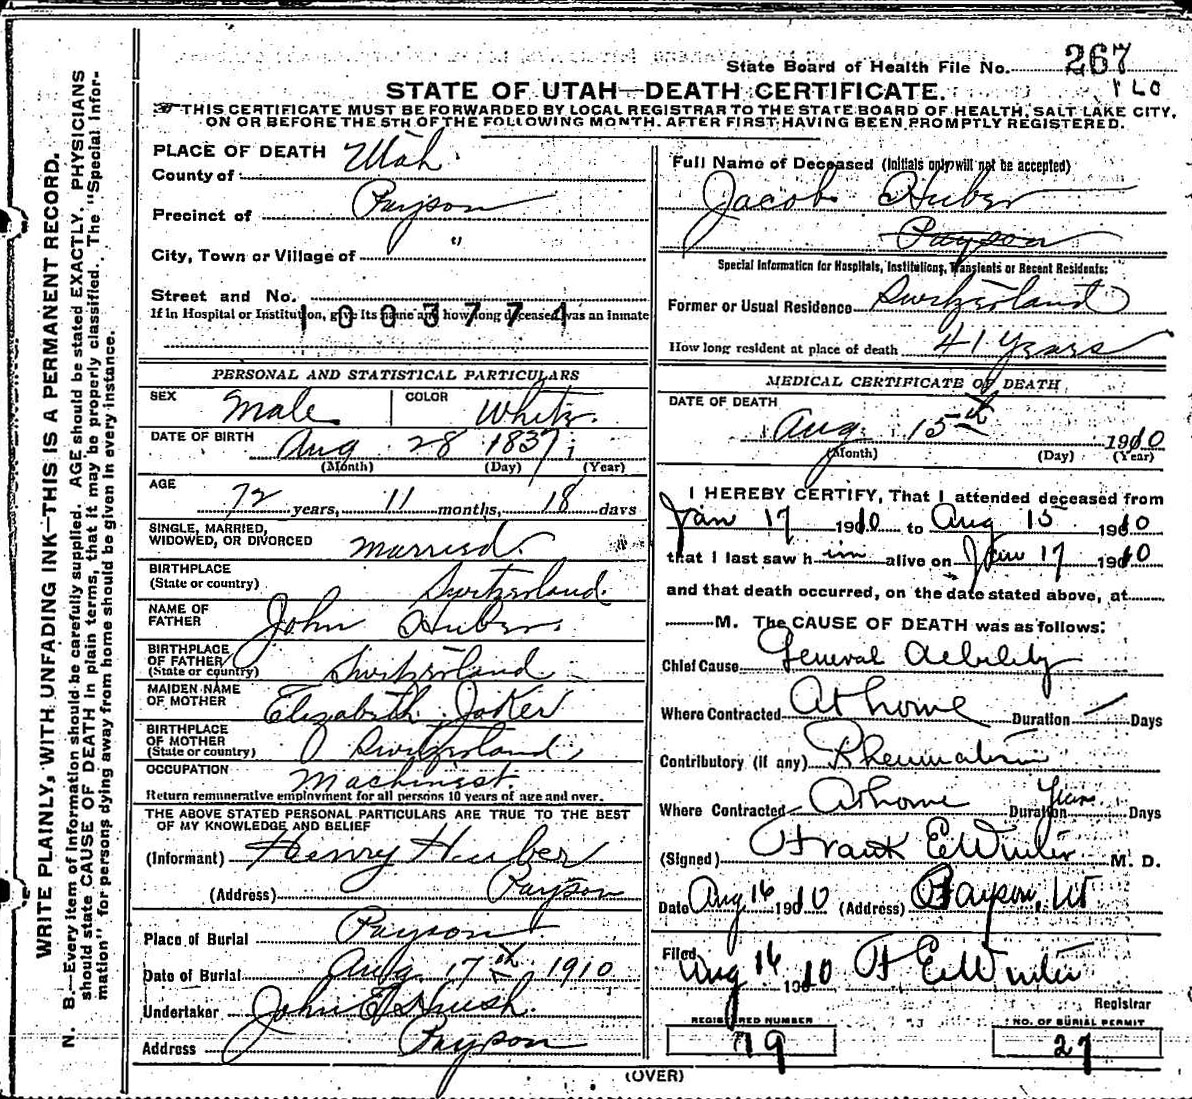 State Board of Health File No. 267
STATE OF UTAH—DEATH CERTIFICATE.
THIS CERTIFICATE MUST BE FORWARDED BY LOCAL REGISTRAR TO THE STATE BOARD OF HEALTH, SALT LAKE CITY,
ON OR BEFORE THE 5TH OF THE FOLLOWING MONTH, AFTER FIRST HAVING BEEN PROMPTLY REGISTERED.
WRITE PLAINLY, WITH UNFADING INK—THIS IS A PERMANENT RECORD.
N. B.—Every item of information should be carefully supplied. AGE should be stated EXACTLY, PHYSICIANS
should state CAUSE OF DEATH in plain terms, that it may be properly classified. The "Special Infor-
mation" for persons dying away from home should be given in every instance.
PLACE OF DEATH
County of Utah
Precinct of Payson
City, Town or Village of "
Street and No.
1003774
If in Hospital or Institution, give its name and how long deceased was an inmate
PERSONAL AND STATISTICAL PARTICULARS
SEX Male COLOR White
DATE OF BIRTH Aug 28 1837
(Month) (Day) (Year)
AGE
72 years, 11 months, 18 days
SINGLE, MARRIED,
WIDOWED, OR DIVORCED Married
BIRTHPLACE
(State or country) Switzerland
NAME OF
FATHER John Huber
BIRTHPLACE
OF FATHER
(State or country) Switzerland
MAIDEN NAME
OF MOTHER Elizabeth Joker
BIRTHPLACE
OF MOTHER
(State or country) Switzerland
OCCUPATION Machinest.
Return remunerative employment for all persons 10 years of age and over.
THE ABOVE STATED PERSONAL PARTICULARS ARE TRUE TO THE BEST
OF MY KNOWLEDGE AND BELIEF
(Informant) Henry Huber
(Address) Payson
Place of Burial Payson
Date of Burial Aug 17th, 1910
Undertaker John E
Address Payson
Full Name of Deceased (Initials only will not be accepted)
Jacob Huber
Payson
Special Information for Hospitals, Institutions, Transients or Recent Residents:
Former or Usual Residence Switzerland
How long resident at place of death 41 years
MEDICAL CERTIFICATE OF DEATH
DATE OF DEATH
Aug 15th 1910
(Month) (Day) (Year)
I HEREBY CERTIFY, That I attended deceased from
Jan 17 1910 to Aug 15 1910
that I last saw him alive on Jan 17 1910
and that death occurred, on the date stated above, at
M. The CAUSE OF DEATH was as follows:
Chief Cause General debility
Where Contracted At home Duration — Days
Contributory (if any) Rheumatism
Where Contracted At home Duration Years Days
(Signed) Frank E Winter M. D.
Date Aug 16 1910 (Address) Payson, Ut
Filed Aug 16 1910 F E Winter
Registrar
REGISTERED NUMBER
79
NO. OF BURIAL PERMIT
27
(OVER)